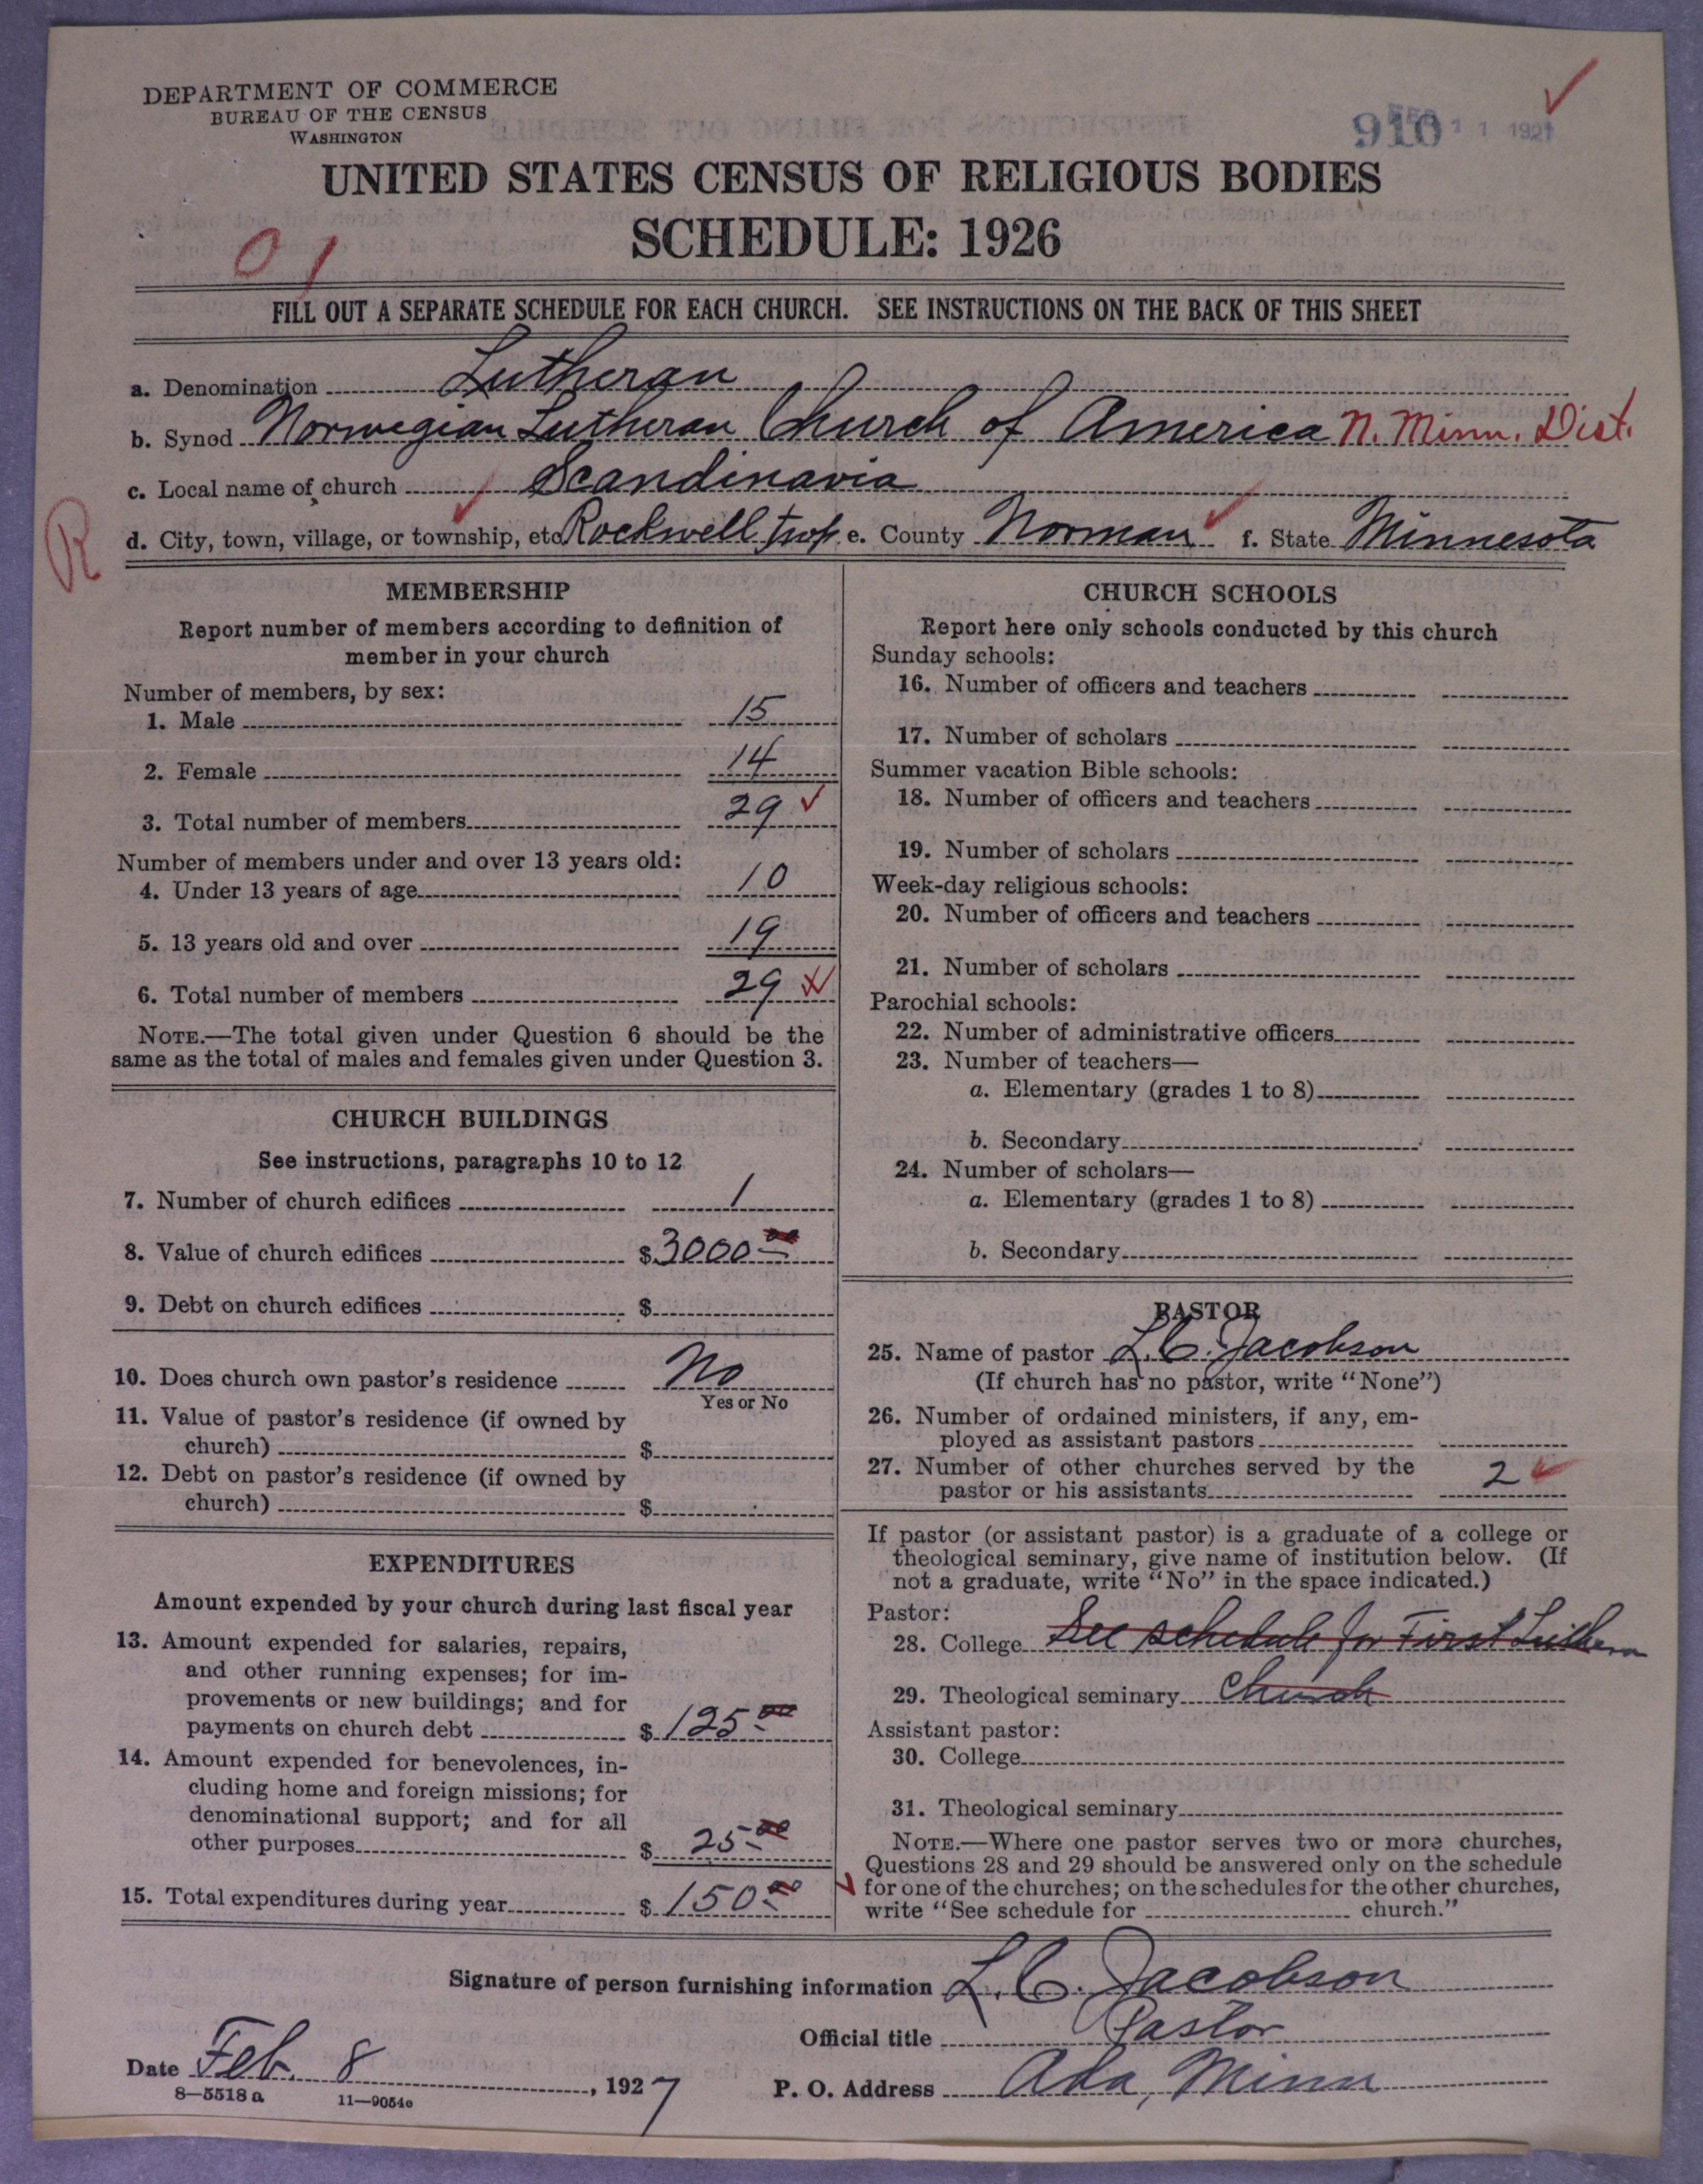 DEPARTMENT OF COMMERCE
BUREAU OF THE CENSUS
WASHINGTON
910 11 1927
UNITED STATES CENSUS OF RELIGIOUS BODIES
SCHEDULE: 1926
01
FILL OUT A SEPARATE SCHEDULE FOR EACH CHURCH. SEE INSTRUCTIONS ON THE BACK OF THIS SHEET
a. Denomination Lutheran
b. Synod Norwegian Lutheran Church of America N. Minn. Dist.
c. Local name of church Scandinavia
R
d. City, town, village, or township, etc Rockwell twp. e. County Norman f. State Minnesota
MEMBERSHIP
Report number of members according to definition of
member in your church
Number of members, by sex:
1. Male 15
2. Female 14
3. Total number of members 29
Number of members under and over 13 years old:
4. Under 13 years of age 10
5. 13 years old and over 19
6. Total number of members 29
NOTE.—The total given under Question 6 should be the
same as the total of males and females given under Question 3.
CHURCH BUILDINGS
See instructions, paragraphs 10 to 12
7. Number of church edifices 1
8. Value of church edifices $ 3000 00
9. Debt on church edifices $
10. Does church own pastor's residence No
Yes or No
11. Value of pastor's residence (if owned by
church) $
12. Debt on pastor's residence (if owned by
church) $
EXPENDITURES
Amount expended by your church during last fiscal year
13. Amount expended for salaries, repairs,
and other running expenses; for im-
provements or new buildings; and for
payments on church debt $ 125 00
14. Amount expended for benevolences, in-
cluding home and foreign missions; for
denominational support; and for all
other purposes $ 25 00
15. Total expenditures during year $ 150 00
CHURCH SCHOOLS
Report here only schools conducted by this church
Sunday schools:
16. Number of officers and teachers
17. Number of scholars
Summer vacation Bible schools:
18. Number of officers and teachers
19. Number of scholars
Week-day religious schools:
20. Number of officers and teachers
21. Number of scholars
Parochial schools:
22. Number of administrative officers
23. Number of teachers—
a. Elementary (grades 1 to 8)
b. Secondary
24. Number of scholars—
a. Elementary (grades 1 to 8)
b. Secondary
PASTOR
25. Name of pastor L. C. Jacobson
(If church has no pastor, write "None")
26. Number of ordained ministers, if any, em-
ployed as assistant pastors
27. Number of other churches served by the
pastor or his assistants 2
If pastor (or assistant pastor) is a graduate of a college or
theological seminary, give name of institution below. (If
not a graduate, write "No" in the space indicated.)
Pastor:
28. College See schedule for First Luthern
29. Theological seminary Church
Assistant pastor:
30. College
31. Theological seminary
NOTE.—Where one pastor serves two or more churches,
Questions 28 and 29 should be answered only on the schedule
for one of the churches; on the schedules for the other churches,
write "See schedule for church."
Signature of person furnishing information L. C. Jacobson
Official title Pastor
Date Feb. 8, 1927
P. O. Address Ada, Minn
8—5518 a 11—9054c